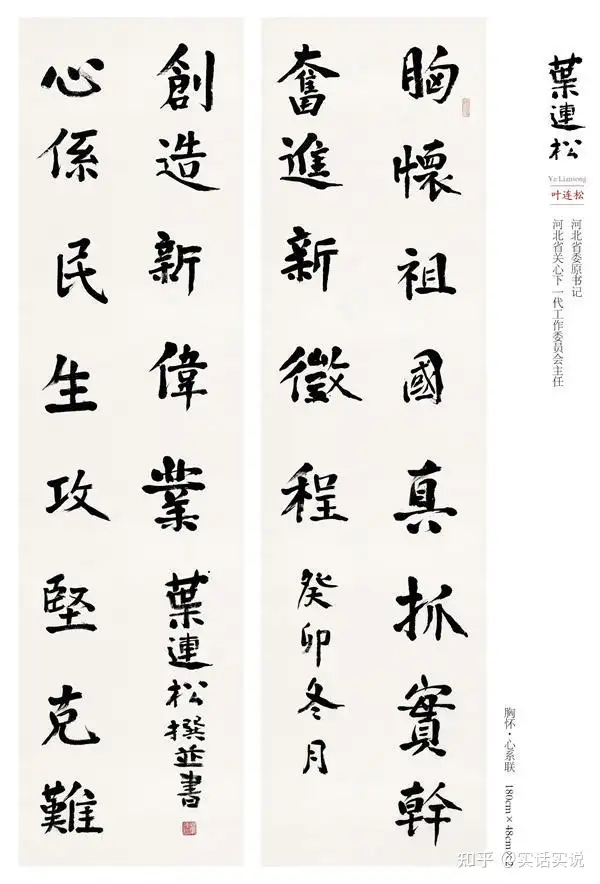 葉連松
Ye Liansong
叶连松
河北省委原书记
河北省关心下一代工作委员会主任
胸懷祖國真抓實幹
奮進新徵程
癸卯冬月
心係民生攻堅克難
創造新偉業
葉連松撰並書
胸怀·心系联 180cm×48cm×2
知乎 @实话实说